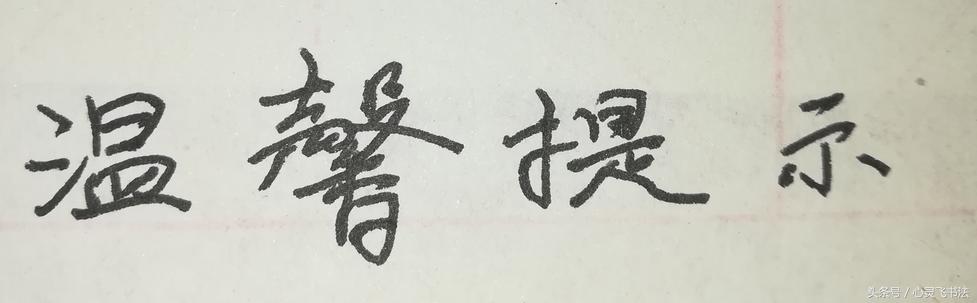 温馨提示
头条号 / 心灵飞书法